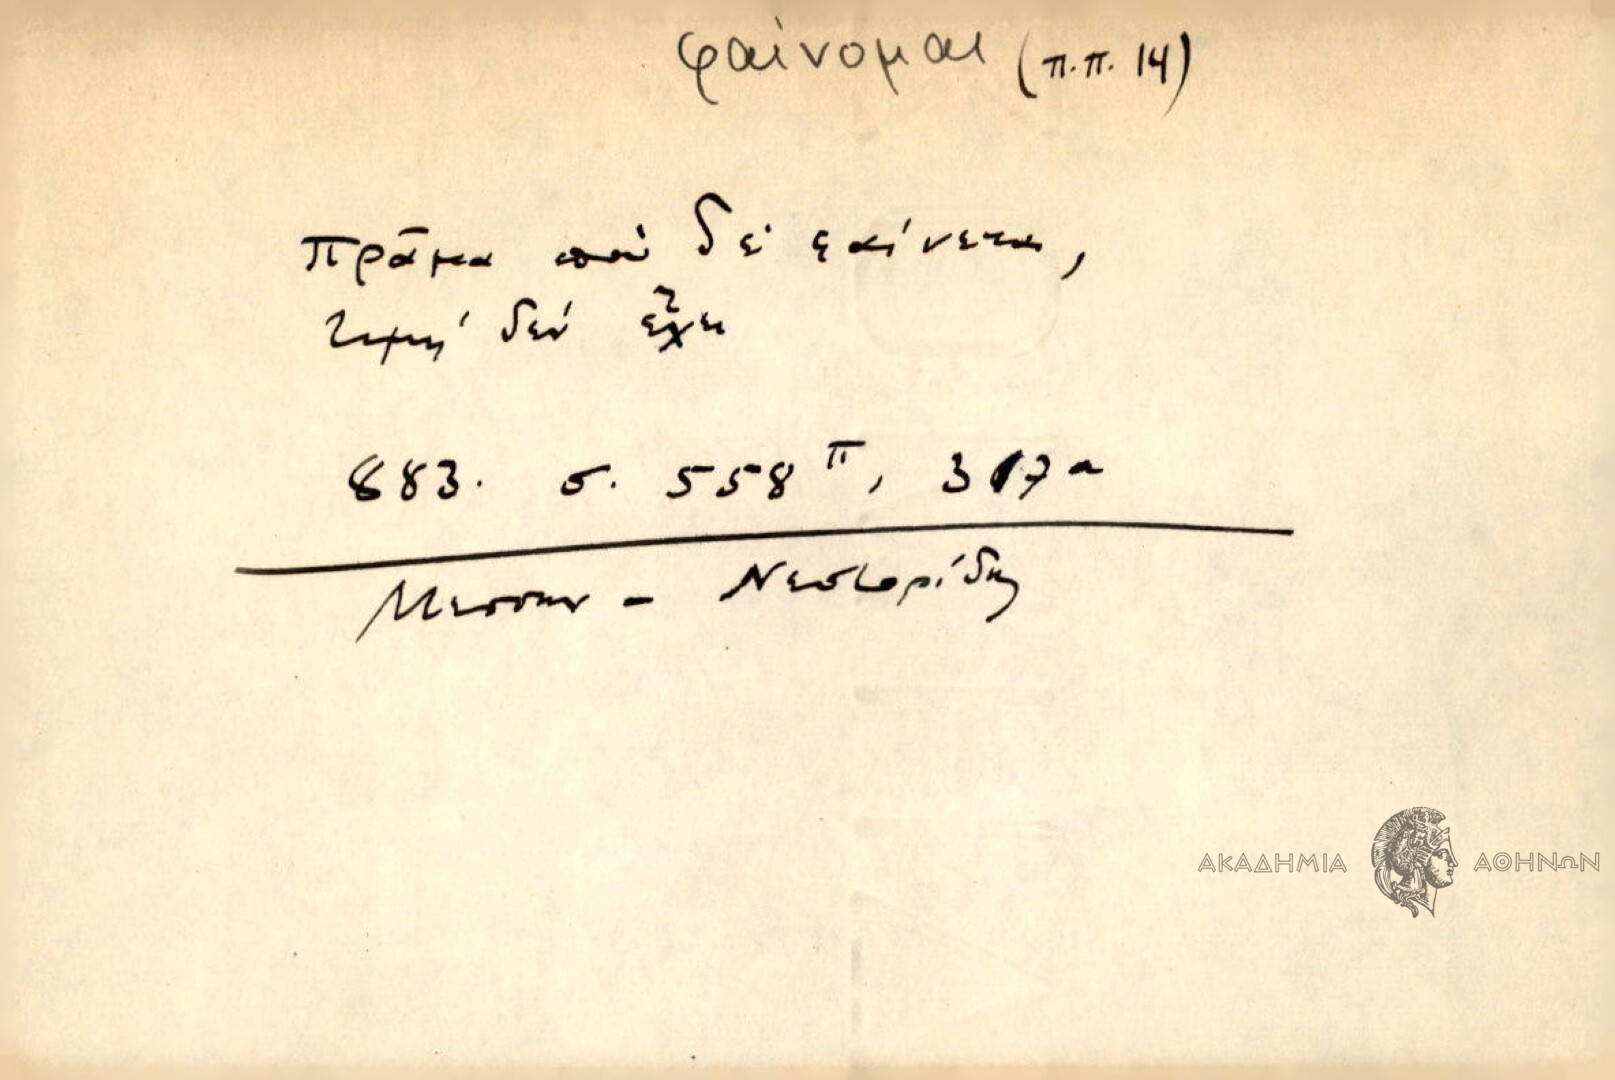 φαίνομαι (π.π. 14)
Πρᾶμα ποὺ δὲ φαίνεται,
τιμὴ δὲν ἔχει
883. σ. 558 π, 317α
Μεσσην - Νεστορίδης
ΑΚΑΔΗΜΙΑ ΑΘΗΝΩΝ